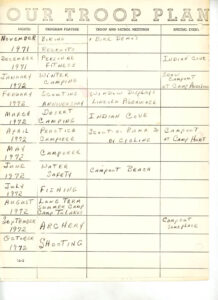 OUR TROOP PLAN
MONTH PROGRAM FEATURE TROOP AND PATROL MEETINGS SPECIAL EVENT
NOVEMBER 1971 HIKING + BIKE DEMO
RECRUITS
DECEMBER 1971 PERSONAL FITNESS INDIAN CAVE
JANUARY 1972 WINTER CAMPING SNOW CAMPOUT AT CAMP
FEBRUARY 1972 SCOUTING ANNIVERSARY WINDOW DISPLAYS
LINCOLN PILGRIMAGE
MARCH 1972 DESERT CAMPING INDIAN COVE
APRIL 1972 PRACTICE CAMPOREE SCOUT-O-RAMA CAMPOUT AT CAMP HUNT
MAY 1972 CAMPOREE
JUNE 1972 WATER SAFETY CAMPOUT BEACH
JULY 1972 FISHING
AUGUST 1972 LONG TERM SUMMER CAMP
SEPTEMBER 1972 ARCHERY CAMPOUT SOMEPLACE
OCTOBER 1972 SHOOTING